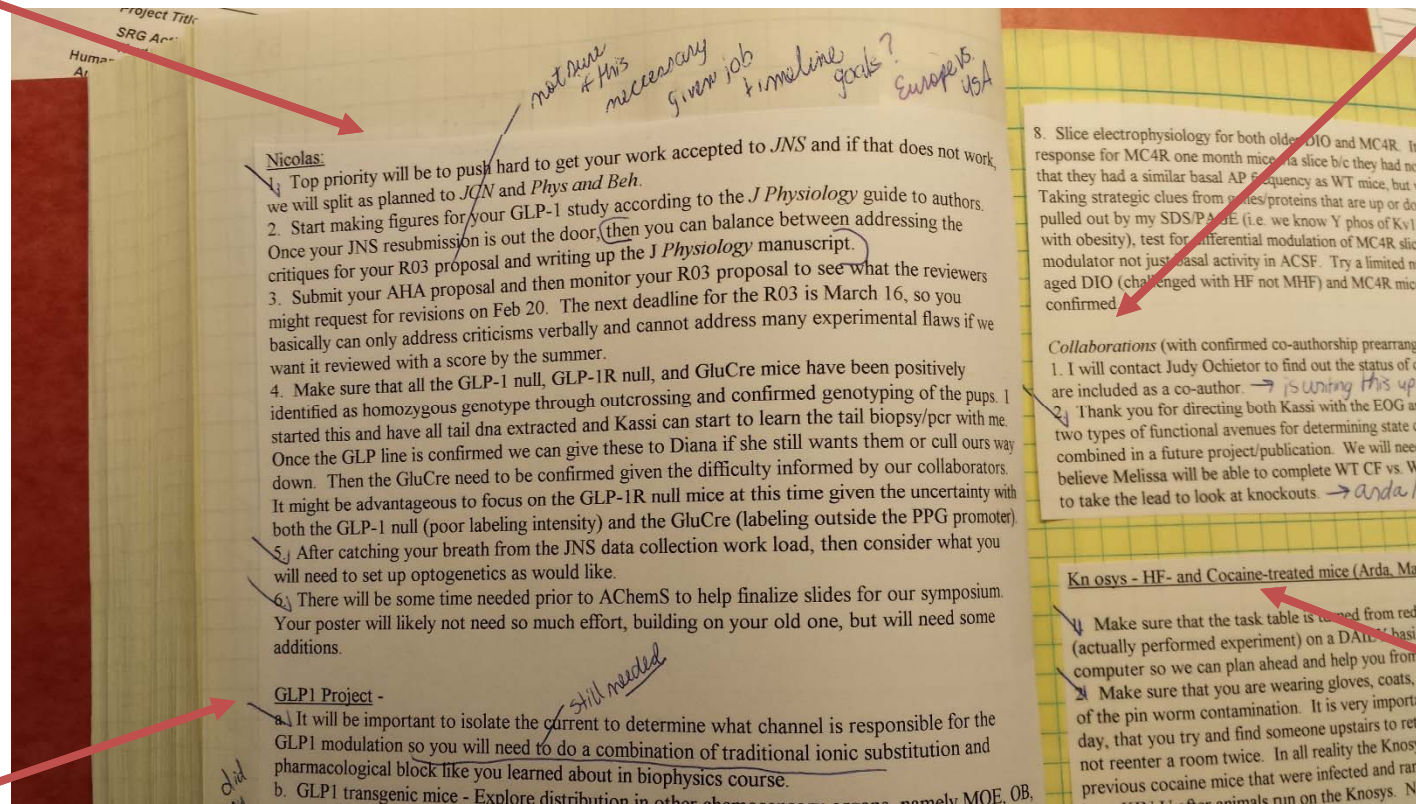 Project Title
SRG
not sure if this neccessary given job timeline goals?
Europe vs. USA
Nicolas:
1. Top priority will be to push hard to get your work accepted to JNS and if that does not work,
we will split as planned to JCN and Phys and Beh.
2. Start making figures for your GLP-1 study according to the J Physiology guide to authors.
Once your JNS resubmission is out the door, then you can balance between addressing the
critiques for your R03 proposal and writing up the J Physiology manuscript.
3. Submit your AHA proposal and then monitor your R03 proposal to see what the reviewers
might request for revisions on Feb 20. The next deadline for the R03 is March 16, so you
basically can only address criticisms verbally and cannot address many experimental flaws if we
want it reviewed with a score by the summer.
4. Make sure that all the GLP-1 null, GLP-1R null, and GluCre mice have been positively
identified as homozygous genotype through outcrossing and confirmed genotyping of the pups. I
started this and have all tail dna extracted and Kassi can start to learn the tail biopsy/pcr with me.
Once the GLP line is confirmed we can give these to Diana if she still wants them or cull ours way
down. Then the GluCre need to be confirmed given the difficulty informed by our collaborators.
It might be advantageous to focus on the GLP-1R null mice at this time given the uncertainty with
both the GLP-1 null (poor labeling intensity) and the GluCre (labeling outside the PPG promoter).
5. After catching your breath from the JNS data collection work load, then consider what you
will need to set up optogenetics as would like.
6. There will be some time needed prior to AChemS to help finalize slides for our symposium.
Your poster will likely not need so much effort, building on your old one, but will need some
additions.
still needed
GLP1 Project -
a. It will be important to isolate the current to determine what channel is responsible for the
GLP1 modulation so you will need to do a combination of traditional ionic substitution and
pharmacological block like you learned about in biophysics course.
did
b. GLP1 transgenic mice - Explore distribution in other chemosensory organs, namely MOE, OB,
8. Slice electrophysiology for both older DIO and MC4R.
response for MC4R one month mice via slice b/c they had
that they had a similar basal AP frequency as WT mice, but
Taking strategic clues from genes/proteins that are up or
pulled out by my SDS/PAGE (i.e. we know Y phos of
with obesity), test for differential modulation of MC4R
modulator not just basal activity in ACSF. Try a limited
aged DIO (challenged with HF not MHF) and MC4R
confirmed
Collaborations (with confirmed co-authorship
1. I will contact Judy Ochietor to find out the status of
are included as a co-author. → is writing this up
2. Thank you for directing both Kassi with the EOG
two types of functional avenues for determining state
combined in a future project/publication. We will
believe Melissa will be able to complete WT CF vs.
to take the lead to look at knockouts. → arda
Kn osys - HF- and Cocaine-treated mice (Arda,
1. Make sure that the task table is turned from red
(actually performed experiment) on a DAILY
computer so we can plan ahead and help you from
2. Make sure that you are wearing gloves, coats,
of the pin worm contamination. It is very
day, that you try and find someone upstairs to
not reenter a room twice. In all reality the
previous cocaine mice that were infected and
animals run on the Knosys.